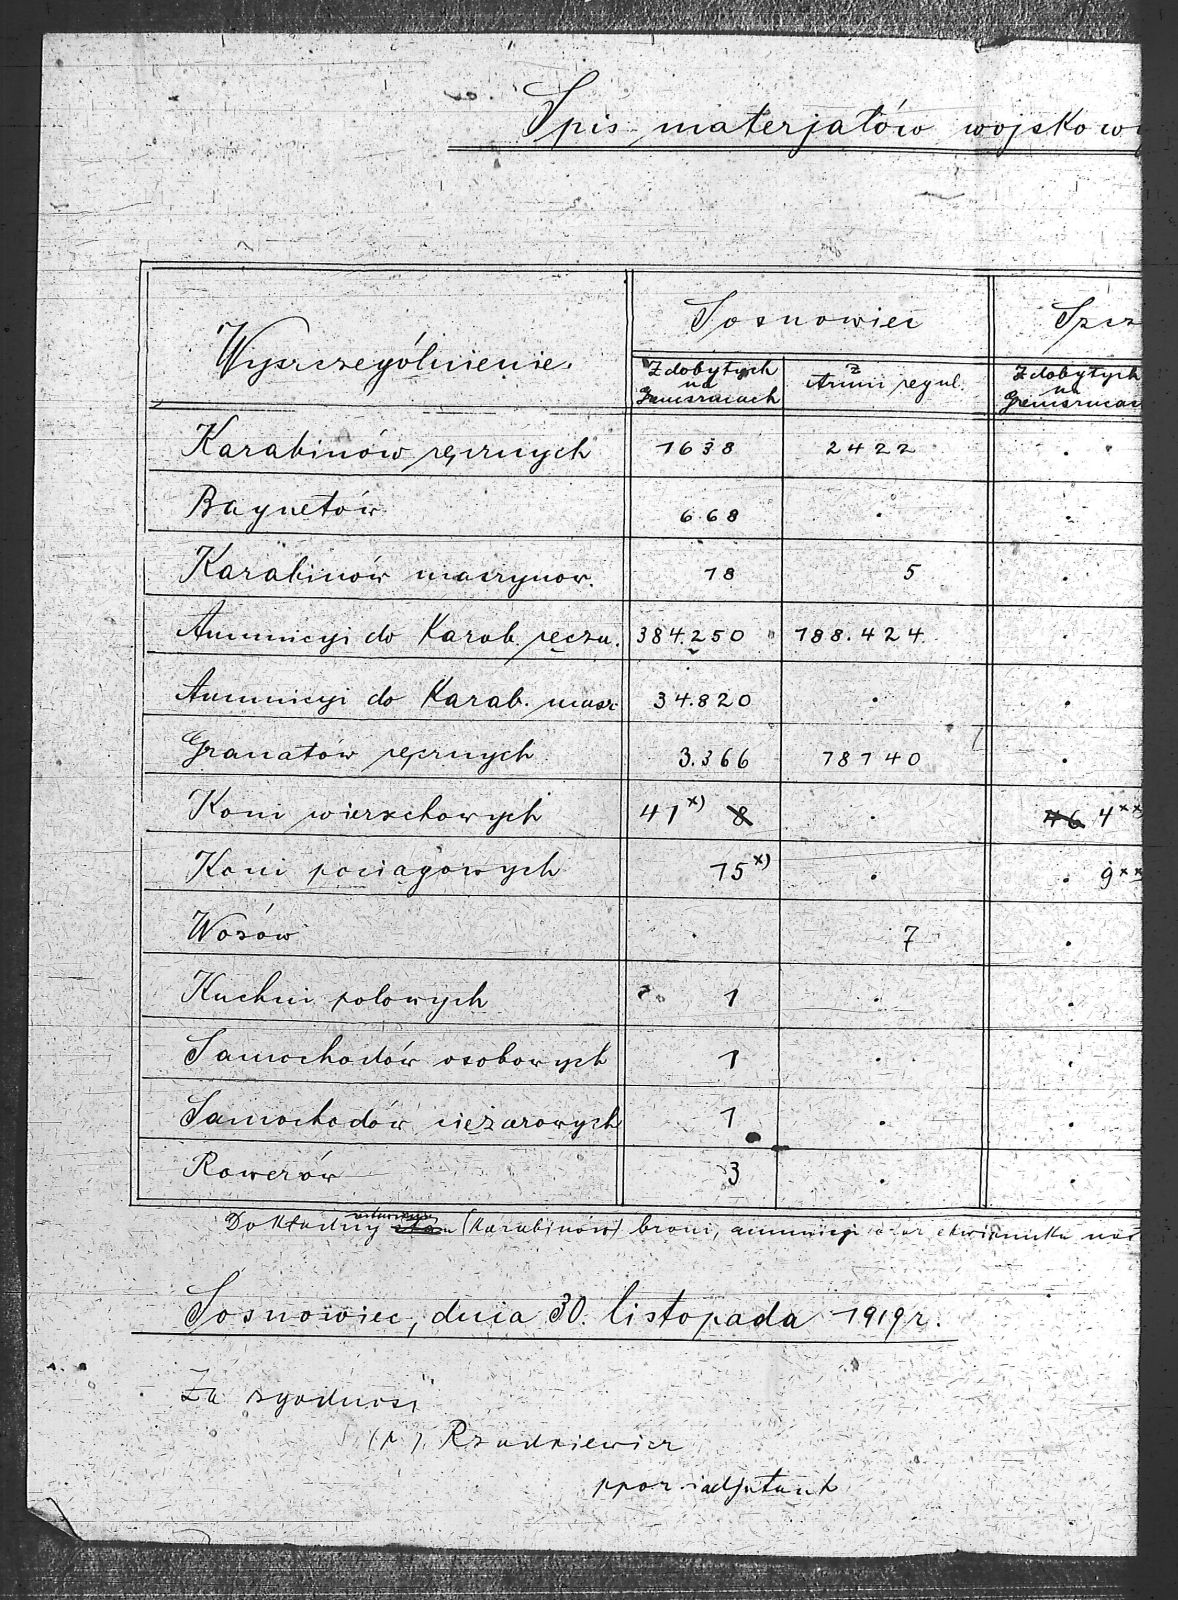 Spis materjałów wojskowy
Wyszczególnienie. Sosnowiec Szcz
Zdobytych na Grenszucach z Armii regul. Zdobytych na Grenszucac
Karabinów ręcznych 1638 2422 .
Bagnetów 668 . .
Karabinów maszynow. 18 5 .
Ammnicyi do Karab. ręczn. 384.250 188.424. .
Ammnicyi do Karab. masz. 34.820 . .
Granatów ręcznych 3.366 78140 .
Koni wierzchowych 41 x) 8 . 46 4 xx
Koni pociągowych 15 x) . . 9 xx
Wozów . 7 .
Kuchni polowych 1 . .
Samochodów osobowych 1 . .
Samochodów ciężarowych 1 . .
Rowerów 3 . .
Dokładny (Karabinów) broni, amunicyi oraz ekwipunku
Sosnowiec, dnia 30. listopada 1919 r.
Za zgodność
(p). Rzadkiewicz
ppor. i adjutant